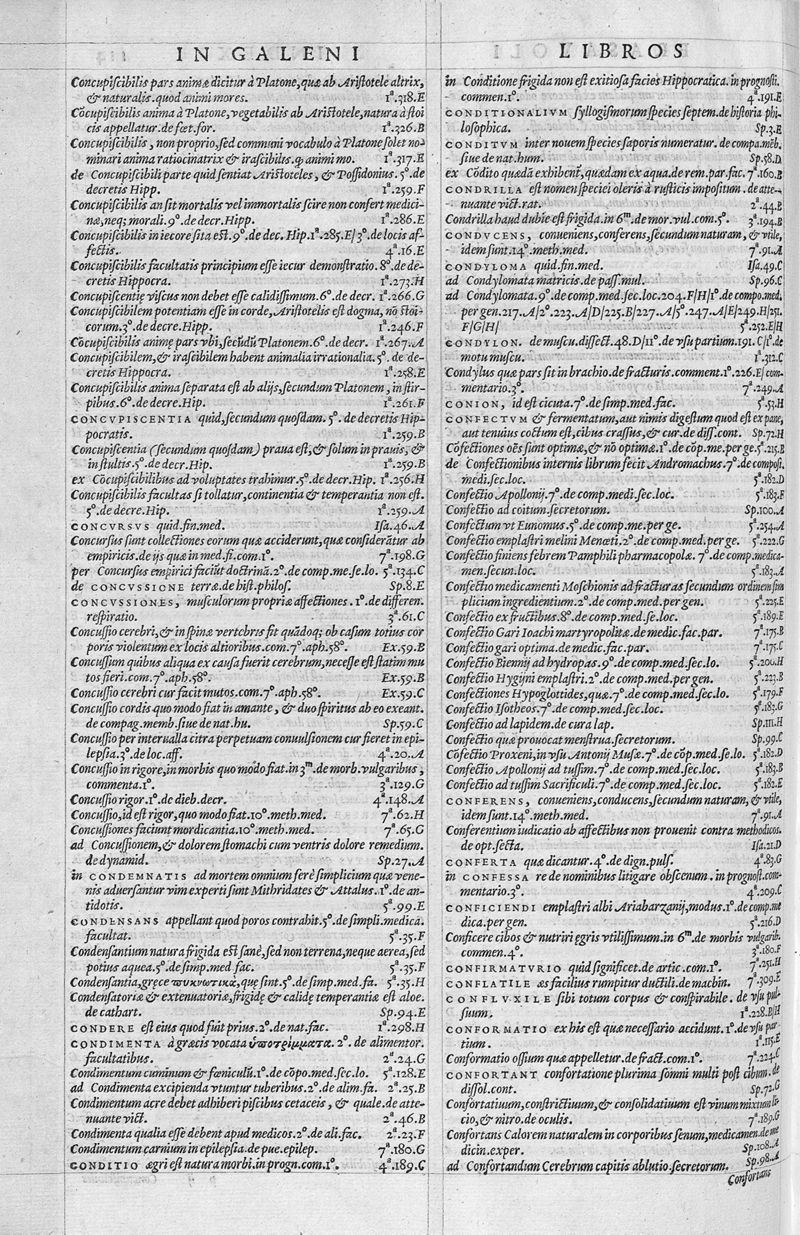 IN GALENI
Concupiſcibilis pars animæ dicitur à Platone, quæ ab Ariſtotele altrix,
& naturalis. quod animi mores. 1ª.318.E
Cõcupiſcibilis anima à Platone, vegetabilis ab Ariſtotele, natura à ſtoi
cis appellatur. de fœt. for. 1ª.326.B
Concupiſcibilis, non proprio, ſed communi vocabulo à Platone ſolet no-
minari anima ratiocinatrix & iraſcibilis. ꝙ animi mo. 1ª.317.E
de Concupiſcibili parte quid ſentiat Ariſtoteles, & Poſſidonius. 5º. de
decretis Hipp. 1ª.259.F
Concupiſcibilis an ſit mortalis vel immortalis ſcire non confert medici-
næ, neq; morali. 9º. de decr. Hipp. 1ª.286.E
Concupiſcibilis in iecore ſita eſt. 9º. de dec. Hip. 1ª.285.E/ 3º. de locis af-
fectis. 4ª.16.E
Concupiſcibilis facultatis principium eſſe iecur demonſtratio. 8º. de de-
cretis Hippocra. 1ª.273.H
Concupiſcentię viſcus non debet eſſe calidiſſimum. 6º. de decr. 1ª.266.G
Concupiſcibilem potentiam eſſe in corde, Ariſtotelis eſt dogma, nõ ſtoi-
corum. 3º. de decre. Hipp. 1ª.246.F
Cõcupiſcibilis animę pars vbi, ſecũdũ Platonem. 6º. de decr. 1ª.267.A
Concupiſcibilem, & iraſcibilem habent animalia irrationalia. 5º. de de-
cretis Hippocra. 1ª.258.E
Concupiſcibilis anima ſeparata eſt ab alijs, ſecundum Platonem, in ſtir-
pibus. 6º. de decre. Hip. 1ª.261.F
CONCVPISCENTIA quid, ſecundum quoſdam. 5º. de decretis Hip-
pocratis. 1ª.259.B
Concupiſcentia (ſecundum quoſdam) praua eſt, & ſolum in prauis, &
in ſtultis. 5º. de decr. Hip. 1ª.259.B
ex Cõcupiſcibilibus ad voluptates trahimur. 5º. de decr. Hip. 1ª.256.H
Concupiſcibilis facultas ſi tollatur, continentia & temperantia non eſt.
5º. de decre. Hip. 1ª.259.A
CONCVRSVS quid. fin. med. Iſa.46.A
Concurſus ſunt collectiones eorum quæ acciderunt, quæ conſiderãtur ab
empiricis. de ijs quæ in med. fi. com. 1º. 7ª.198.G
per Concurſus empirici faciũt doctrinã. 2º. de comp. me. ſe. lo. 5ª.134.C
de CONCVSSIONE terræ. de hiſt. philoſ. Sp.8.E
CONCVSSIONES, muſculorum propriæ affectiones. 1º. de differen.
reſpiratio. 3ª.61.C
Concuſſio cerebri, & in ſpinæ vertebris fit quãdoq; ob caſum totius cor
poris violentum ex locis altioribus. com. 7º. aph. 58º. Ex.59.B
Concuſſum quibus aliqua ex cauſa fuerit cerebrum, neceſſe eſt ſtatim mu
tos fieri. com. 7º. aph. 58º. Ex.59.B
Concuſſio cerebri cur facit mutos. com. 7º. aph. 58º. Ex.59.C
Concuſſio cordis quo modo fiat in amante, & duo ſpiritus ab eo exeant.
de compag. memb. ſiue de nat. hu. Sp.59.C
Concuſſio per interualla citra perpetuam conuulſionem cur fieret in epi-
lepſia. 3º. de loc. aff. 4ª.20.A
Concuſſio in rigore, in morbis quo modo fiat. in 3ᵐ. de morb. vulgaribus,
commenta. 1º. 3ª.129.G
Concuſſio rigor. 1º. de dieb. decr. 4ª.148.A
Concuſſio, id eſt rigor, quo modo fiat. 10º. meth. med. 7ª.62.H
Concuſſiones faciunt mordicantia. 10º. meth. med. 7ª.65.G
ad Concuſſionem, & dolorem ſtomachi cum ventris dolore remedium.
de dynamid. Sp.27.A
in CONDEMNATIS ad mortem omnium ferè ſimplicium quæ vene-
nis aduerſantur vim experti ſunt Mithridates & Attalus. 1º. de an-
tidotis. 5ª.99.E
CONDENSANS appellant quod poros contrabit. 5º. de ſimpli. medica.
facultat. 5ª.35.F
Condenſantium natura frigida eſt ſanè, ſed non terrena, neque aerea, ſed
potius aquea. 5º. de ſimp. med fac. 5ª.35.F
Condenſantia, grece πυκνωτικὰ, que ſint. 5º. de ſimp. med. fa. 5ª.35.H
Condenſatoriæ & extenuatoriæ, frigidę & calidę temperantiæ eſt aloe.
de cathart. Sp.94.E
CONDERE eſt eius quod fuit prius. 2º. de nat. fac. 1ª.298.H
CONDIMENTA à græcis vocata ὑποτρίμματα. 2º. de alimentor.
facultatibus. 2ª.24.G
Condimentum cuminum & fœniculũ. 1º. de cõpo. med. ſec. lo. 5ª.128.E
ad Condimenta excipienda vtuntur tuberibus. 2º. de alim. fa. 2ª.25.B
Condimentum acre debet adhiberi piſcibus cetaceis, & quale. de atte-
nuante vict. 2ª.46.B
Condimenta qualia eſſe debent apud medicos. 2º. de ali. fac. 2ª.23.F
Condimentum carnium in epilepſia. de pue. epilep. 7ª.180.G
CONDITIO ægri eſt natura morbi. in progn. com. 1º. 4ª.189.C
LIBROS
in Conditione frigida non eſt exitioſa facies Hippocratica. in prognoſti.
commen. 1º. 4ª.191.E
CONDITIONALIVM ſyllogiſmorum ſpecies ſeptem. de hiſtoria phi-
loſophica. Sp.3.E
CONDITVM inter nouem ſpecies ſaporis numeratur. de compa. mẽb.
ſiue de nat. hum. Sp.58.D
ex Cõdito quædã exhibent, quædam ex aqua. de rem. par. fac. 7ª.160.B
CONDRILLA eſt nomen ſpeciei oleris à ruſticis impoſitum. de atte-
nuante vict. rat. 2ª.44.B
Condrilla haud dubie eſt frigida. in 6ᵐ. de mor. vul. com. 5º. 3ª.194.B
CONDVCENS, conueniens, conferens, ſecundum naturam, & vtile,
idem ſunt. 14º. meth. med. 7ª.91.A
CONDYLOMA quid. fin. med. Iſa.49.C
ad Condylomata matricis. de paſſ. mul. Sp.96.C
ad Condylomata. 9º. de comp. med. ſec. loc. 204.F/H/1º. de compo. med.
per gen. 217.A/2º. 223.A/D/225.B/227.A/5º. 247.A/E/249.H/251.
F/G/H/ 5ª.252.E/H
CONDYLON. de muſcu. diſſect. 48.D/11º. de vſu partium. 191.C/1º. de
motu muſcu. 1ª.312.C
Condylus quæ pars ſit in brachio. de fracturis. comment. 1º. 226.E/ com-
mentario. 3º. 7ª.249.A
CONION, id eſt cicuta. 7º. de ſimp. med. fac. 5ª.53.H
CONFECTVM & fermentatum, aut nimis digeſtum quod eſt ex pane,
aut tenuius coctum eſt, cibus craſſus, & cur. de diff. cont. Sp.72.H
Cõfectiones oẽs ſunt optimæ, & nõ optimæ. 1º. de cõp. me. per ge. 5ª.215.B
de Confectionibus internis librum fecit Andromachus. 7º. de compoſi.
medi. ſec. loc. 5ª.182.D
Confectio Apollonij. 7º. de comp. medi. ſec. loc. 5ª.183.F
Confectio ad coitum. ſecretorum. Sp.100.A
Confectum vt Eunomus. 5º. de com. me. per ge. 5ª.254.A
Confectio emplaſtri melini Menœti. 2º. de comp. med. per ge. 5ª.222.G
Confectio finiens febrem Pamphili pharmacopolæ. 7º. de comp. medica-
men. ſecun. loc. 5ª.183.A
Confectio medicamenti Moſchionis ad fracturas ſecundum ordinem ſim
plicium ingredientium. 2º. de comp. med. per gen. 5ª.225.E
Confectio ex fructibus. 8º. de comp. med. ſe. loc. 5ª.189.E
Confectio Gari Ioachi martyropolitæ. de medic. fac. par. 7ª.175.B
Confectio gari optima. de medic. fac. par. 7ª.175.C
Confectio Biennij ad hydropas. 9º. de comp. med. ſec. lo. 5ª.200.H
Confectio Hygijni emplaſtri. 2º. de comp. med. per gen. 5ª.223.B
Confectiones Hypoglottides, quæ. 7º. de comp. med. ſec. lo. 5ª.179.F
Confectio Iſotheos. 7º. de comp. med. ſec. loc. 5ª.183.G
Confectio ad lapidem. de cura lap. Sp.111.H
Confectio quæ prouocat menſtrua. ſecretorum. Sp.99.C
Cõfectio Proxeni, in vſu Antonij Muſæ. 7º. de cõp. med. ſe. lo. 5ª.182.D
Confectio Apollonij ad tuſſim. 7º. de comp. med. ſec. loc. 5ª.183.B
Confectio ad tuſſim Sacrificuli. 7º. de comp. med. ſec. loc. 5ª.182.E
CONFERENS, conueniens, conducens, ſecundum naturam, & vtile,
idem ſunt. 14º. meth. med. 7ª.91.A
Conferentium iudicatio ab affectibus non prouenit contra methodicos.
de opt. ſecta. Iſa.21.D
CONFERTA quæ dicantur. 4º. de dign. pulſ. 4ª.83.G
in CONFESSA re de nominibus litigare obſcenum. in prognoſt. com-
mentario. 3º. 4ª.209.C
CONFICIENDI emplaſtri albi Ariabarzanij, modus. 1º. de comp. me
dica. per gen. 5ª.216.D
Conficere cibos & nutriri ęgris vtiliſſimum. in 6ᵐ. de morbis vulgarib.
commen. 4º. 3ª.180.F
CONFIRMATVRIO quid ſignificet. de artic. com. 1º. 7ª.251.H
CONFLATILE æs facilius rumpitur ductili. de machin. 7ª.309.E
CONFLVXILE ſibi totum corpus & conſpirabile. de vſu pul-
ſuum. 1ª.228.B/H
CONFORMATIO ex his eſt quæ neceſſario accidunt. 1º. de vſu par-
tium. 1ª.115.E
Conformatio oſſium quæ appelletur. de fract. com. 1º. 7ª.224.C
CONFORTANT confortatione plurima ſomni multi poſt cibum. de
diſſol. cont. Sp.72.G
Confortatiuum, conſtrictiuum, & conſolidatiuum eſt vinum mixtum li-
cio, & nitro. de oculis. 7ª.189.G
Confortans Calorem naturalem in corporibus ſenum, medicamen. de me
dicin. exper. Sp.108.A
ad Confortandum Cerebrum capitis ablutio. ſecretorum. Sp.98.A
Confortans